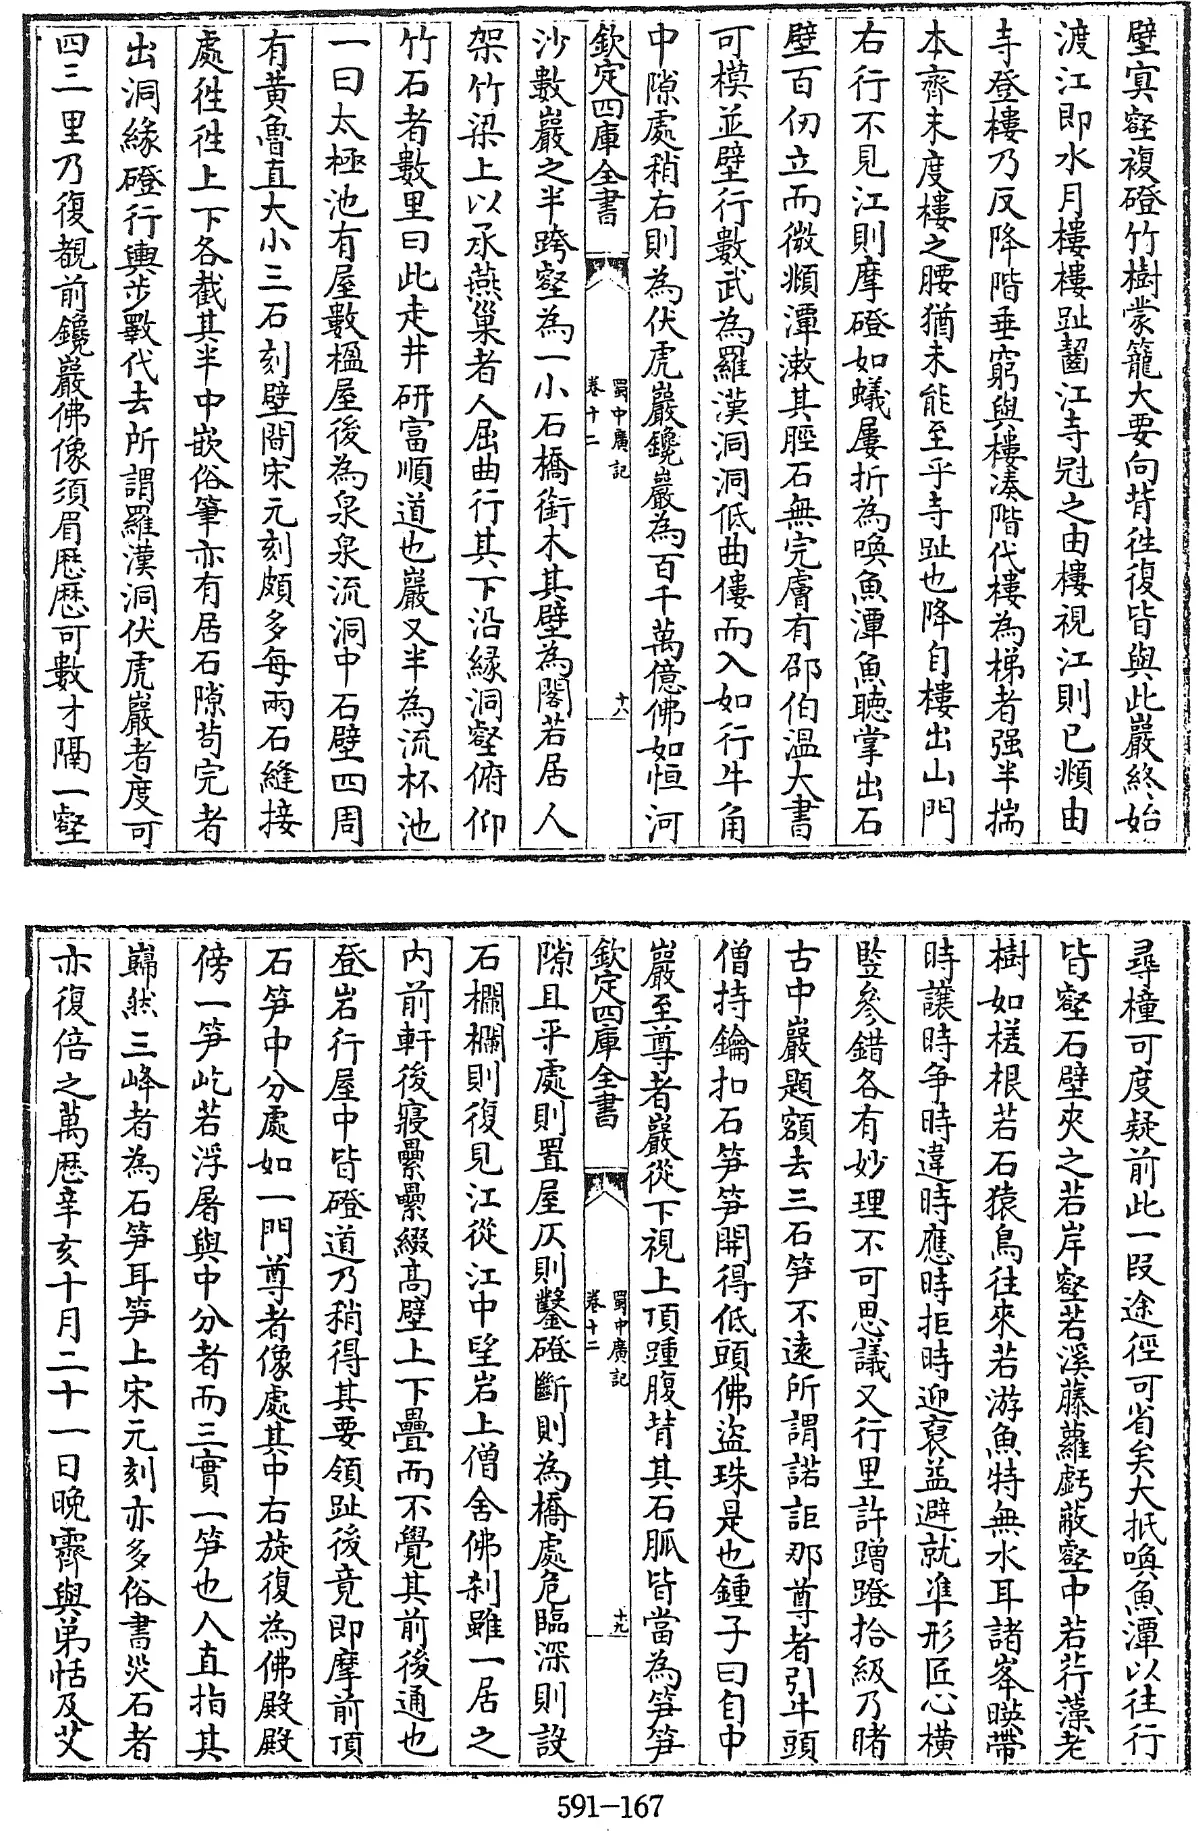 壁寘壑複磴竹樹蒙籠大要向背往復皆與此巖終始
渡江即水月樓樓趾齧江寺冠之由樓視江則已頫由
寺登樓乃反降階垂窮與樓湊階代樓為梯者强半揣
本齊末度樓之腰猶未能至乎寺趾也降自樓出山門
右行不見江則摩磴如蟻屢折為喚魚潭魚聽掌出石
壁百仞立而微頫潭漱其脛石無完膚有邵伯溫大書
可模並壁行數武為羅漢洞洞低曲僂而入如行牛角
中隙處稍右則為伏虎巖鑱巖為百千萬億佛如恒河
欽定四庫全書
蜀中廣記
卷十二
十八
沙數巖之半跨壑為一小石橋銜木其壁為閣若居人
架竹梁上以承燕巢者人屈曲行其下沿緣洞壑俯仰
竹石者數里曰此走井研富順道也巖又半為流杯池
一曰太極池有屋數楹屋後為泉泉流洞中石壁四周
有黄魯直大小三石刻壁間宋元刻頗多每兩石縫接
處徃徃上下各截其半中嵌俗筆亦有居石隙茍完者
出洞緣磴行輿步戰代去所謂羅漢洞伏虎巖者度可
四三里乃復觀前鑱巖佛像須眉歷歷可數才隔一壑
尋橦可度疑前此一段途徑可省矣大抵喚魚潭以往行
皆壑石壁夾之若岸壑若溪藤蘿虧蔽壑中若荇藻老
樹如槎根若石猿鳥往來若游魚特無水耳諸峯暎帶
時讓時争時違時應時拒時迎裒益避就準形匠心横
豎參錯各有妙理不可思議又行里許蹭蹬拾級乃睹
古中巖題額去三石笋不遠所謂諾詎那尊者引牛頭
僧持鑰扣石笋笋開得低頭佛盜珠是也鍾子曰自中
巖至尊者巖從下視上頂踵腹背其石脈皆當為笋笋
欽定四庫全書
蜀中廣記
卷十二
十九
隙且平處則置屋仄則鑿磴斷則為橋處危臨深則設
石欄欄則復見江從江中望岩上僧舍佛刹雖一居之
内前軒後寢纍纍綴高壁上下疊而不覺其前後通也
登岩行屋中皆磴道乃稍得其要領趾後竟即摩前頂
石笋中分處如一門尊者像處其中右旋復為佛殿殿
傍一笋屹若浮屠與中分者而三實一笋也人直指其
巋然三峰者為石笋耳笋上宋元刻亦多俗書災石者
亦復倍之萬歷辛亥十月二十一日晚霽與弟恬及艾
591-167